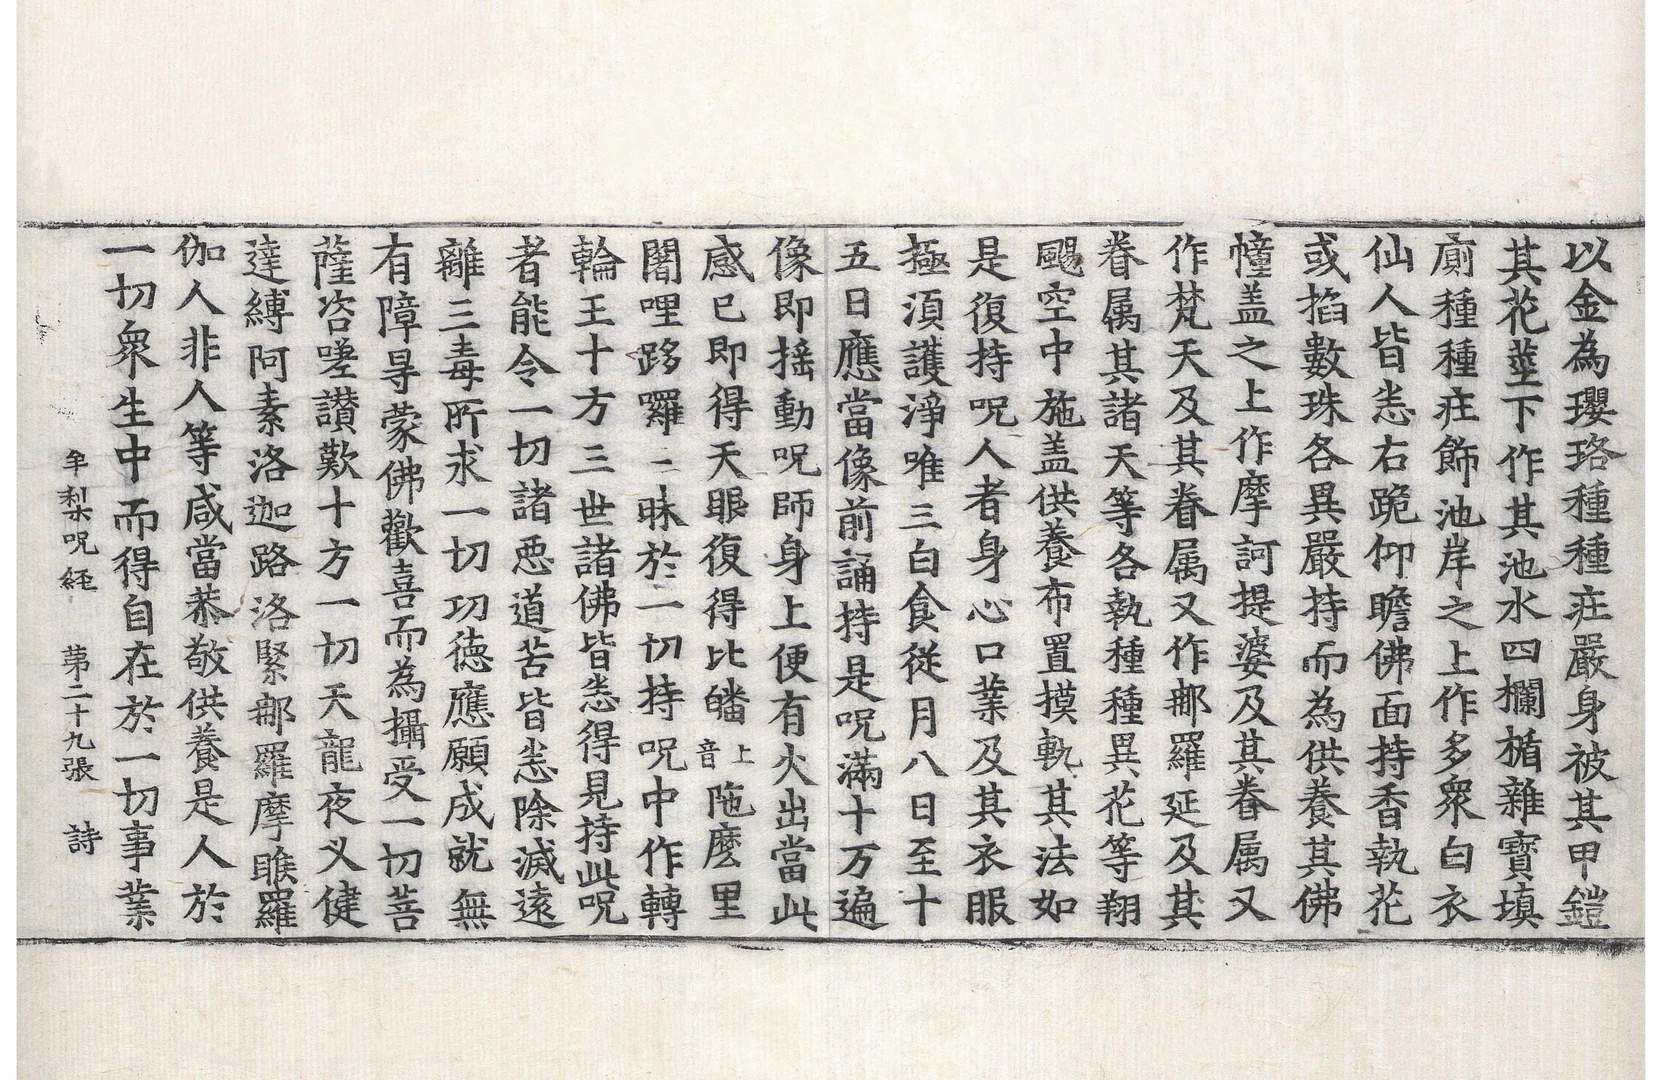 以金為瓔珞種種庄嚴身被其甲鎧
其花莖下作其池水四欄楯雜寶填
廁種種庄飾池岸之上作多眾白衣
仙人皆悉右跪仰瞻佛面持香執花
或掐數珠各異嚴持而為供養其佛
幢盖之上作摩訶提婆及其眷属又
作梵天及其眷属又作那羅延及其
眷属其諸天等各執種種異花等翔
颺空中施盖供養布置摸軌其法如
是復持呪人者身心口業及其衣服
極須護淨唯三白食從月八日至十
五日應當像前誦持是呪滿十万遍
像即搖動呪師身上便有火出當此
感已即得天眼復得比皤上音陁麼里
闍哩跢囉三昧於一切持呪中作轉
輪王十方三世諸佛皆悉得見持此呪
者能令一切諸悪道苦皆悉除滅遠
離三毒所求一切功德應願成就無
有障㝵蒙佛歡喜而為攝受一切菩
薩咨嗟讃歎十方一切天龍夜叉健
達縛阿素洛迦路洛緊那羅摩睺羅
伽人非人等咸當恭敬供養是人於
一切眾生中而得自在於一切事業
牟梨呪経 苐二十九張 詩